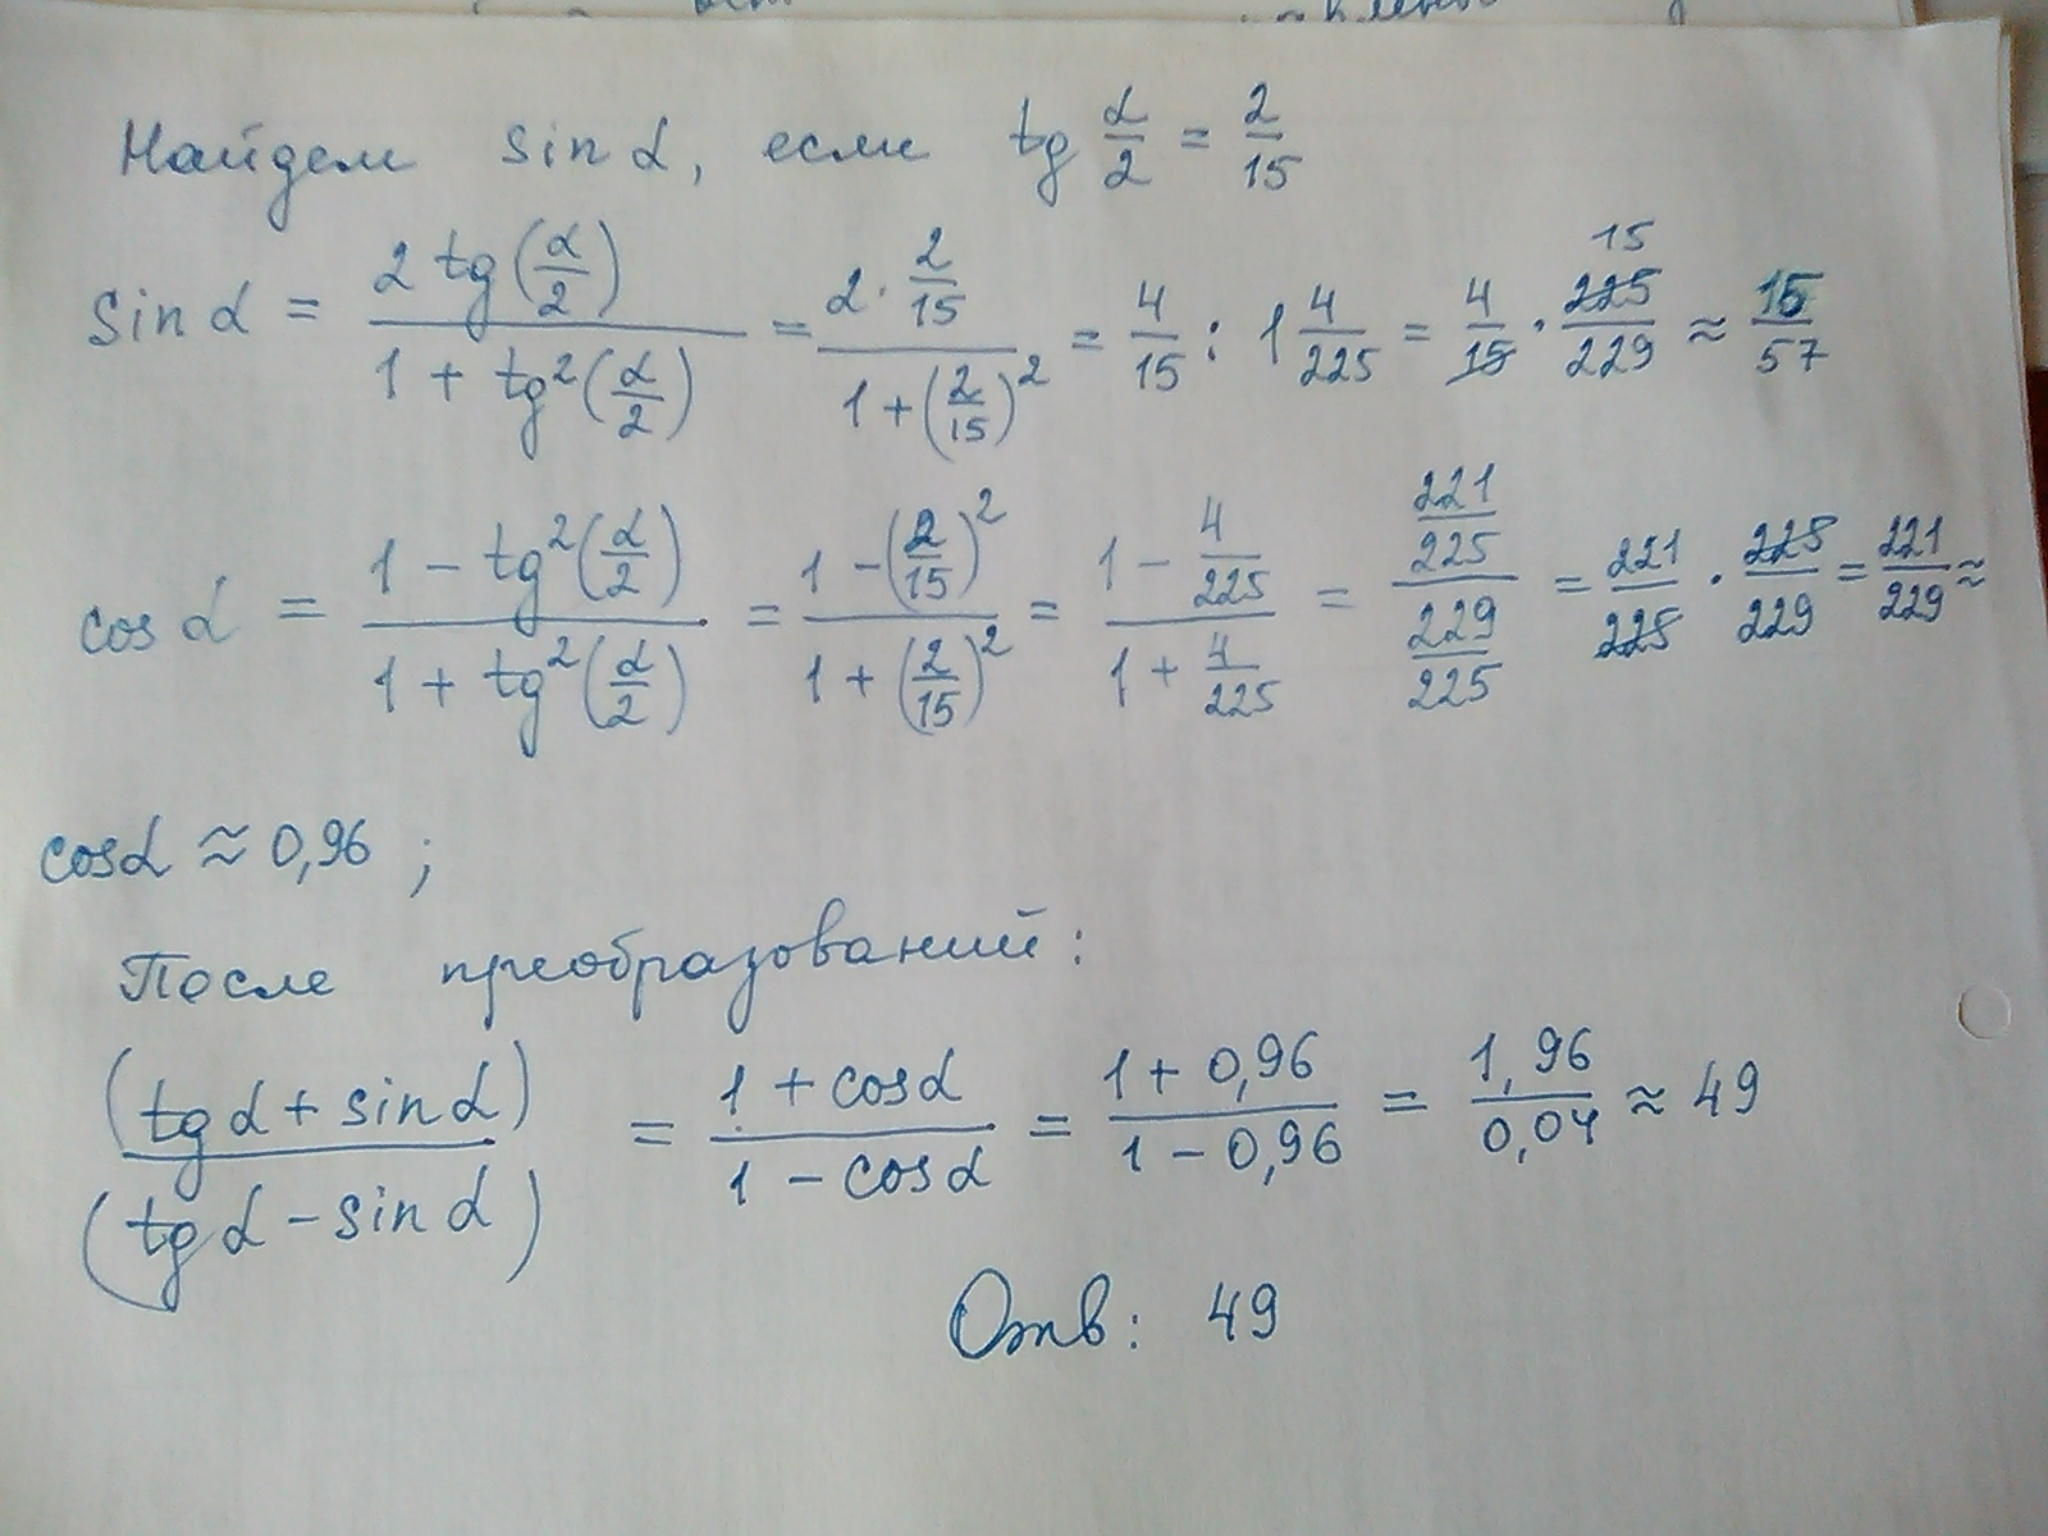 Найдем sin α, если tg α/2 = 2/15
sin α = 2 tg(α/2) / (1 + tg²(α/2)) = 2 · 2/15 / (1 + (2/15)²) = 4/15 : 1 4/225 = 4/15 · 225/229 ≈ 15/57
15
cos α = (1 - tg²(α/2)) / (1 + tg²(α/2)) = (1 - (2/15)²) / (1 + (2/15)²) = (1 - 4/225) / (1 + 4/225) = (221/225) / (229/225) = 221/225 · 225/229 = 221/229 ≈
cosα ≈ 0,96 ;
После преобразований:
(tg α + sin α) / (tg α - sin α) = (1 + cosα) / (1 - cosα) = (1 + 0,96) / (1 - 0,96) = 1,96 / 0,04 ≈ 49
Отв: 49